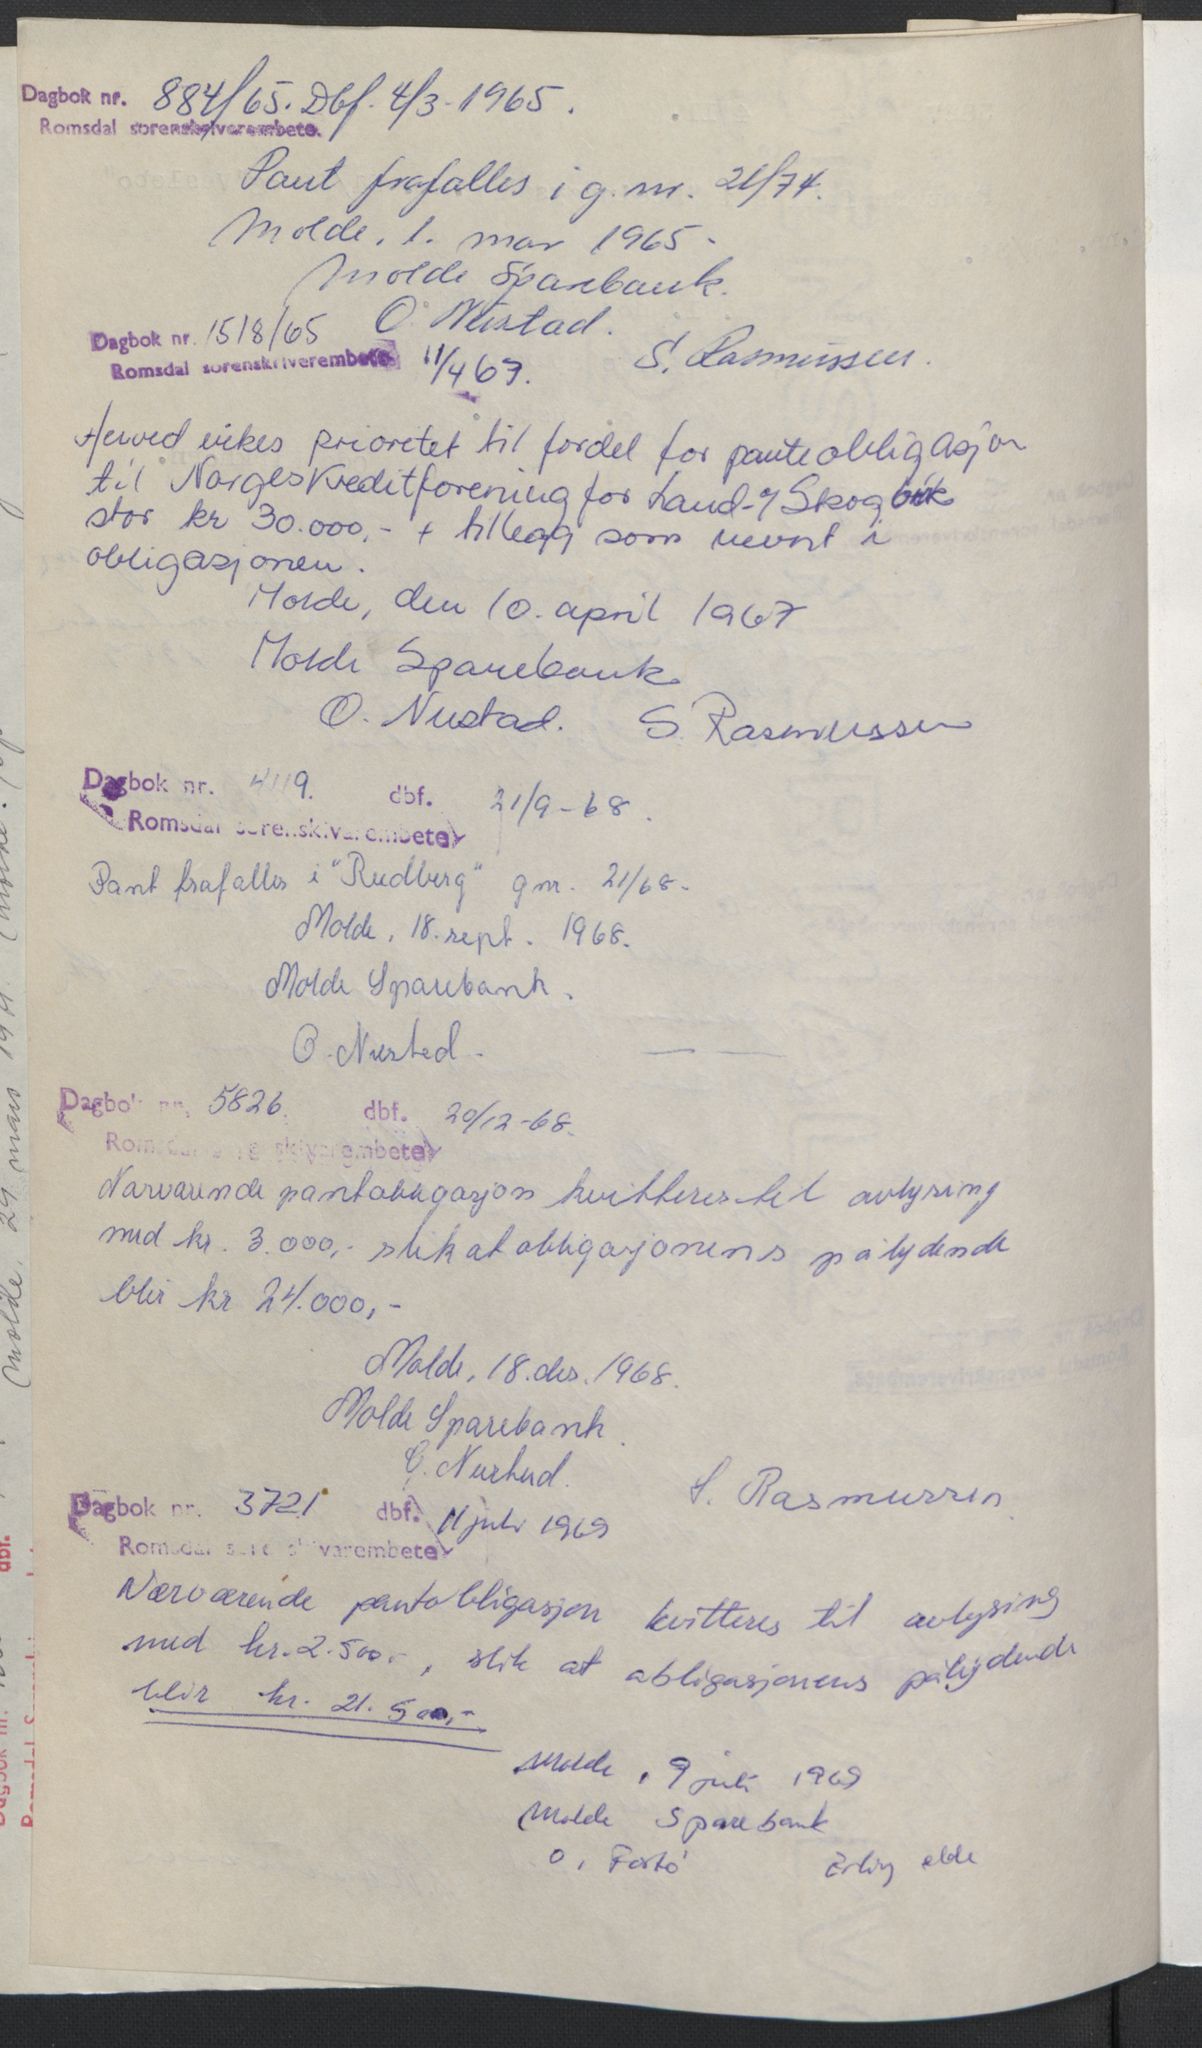 Dagbok nr. 884/65. Dbf. 4/3-1965.
Romsdal sorenskriverembete.
Pant frafalles i g.nr. 21/74.
Molde, 1. mar 1965.
Molde Sparebank.
O. Nustad.
S. Rasmussen.
Dagbok nr. 1518/65
Romsdal sorenskriverembete 11/4 67.
Herved vikes prioretet til fordel for panteobligasjon
til Norges Kreditforening for Land- og Skogbruk
stor kr 30.000,- + tillegg som nevnt i
obligasjonen.
Molde, den 10. april 1967
Molde Sparebank
O. Nustad. S. Rasmussen
Dagbok nr. 4119. dbf. 21/9-68.
Romsdal sorenskrivarembete
Pant frafalles i "Rudberg" gnr. 21/68.
Molde, 18. sept. 1968.
Molde Sparebank.
O. Nustad.
Dagbok nr. 5826. dbf. 20/12-68.
Romsdal sorenskrivarembete
Nærværende pantobligasjon kvitteres til avlysing
med kr. 3.000,- slik at obligasjonens pålydende
blir kr 24.000,-
Molde, 18. des. 1968.
Molde Sparebank.
O. Nustad.
S. Rasmussen
Dagbok nr. 3721 dbf. 11 juli 1969
Romsdal sorenskrivarembete
Nærværende pantobligasjon kvitteres til avlysing
med kr. 2.500.-, slik at obligasjonens pålydende
blir kr. 21.500,-
Molde, 9 juli 1969
Molde Sparebank
O.